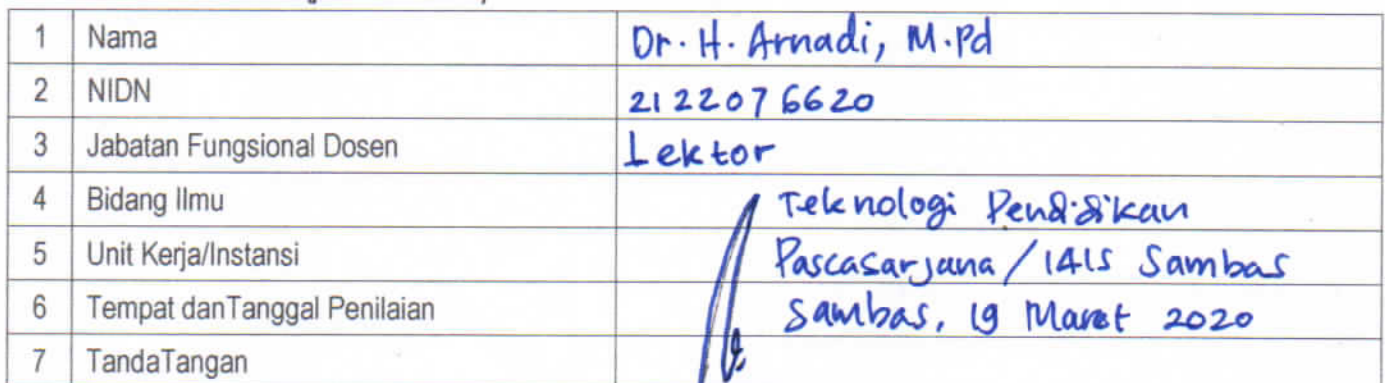 1 Nama Dr. H. Arnadi, M.Pd
2 NIDN 2122076620
3 Jabatan Fungsional Dosen Lektor
4 Bidang Ilmu Teknologi Pendidikan
5 Unit Kerja/Instansi Pascasarjana/IAIS Sambas
6 Tempat danTanggal Penilaian Sambas, 19 Maret 2020
7 TandaTangan